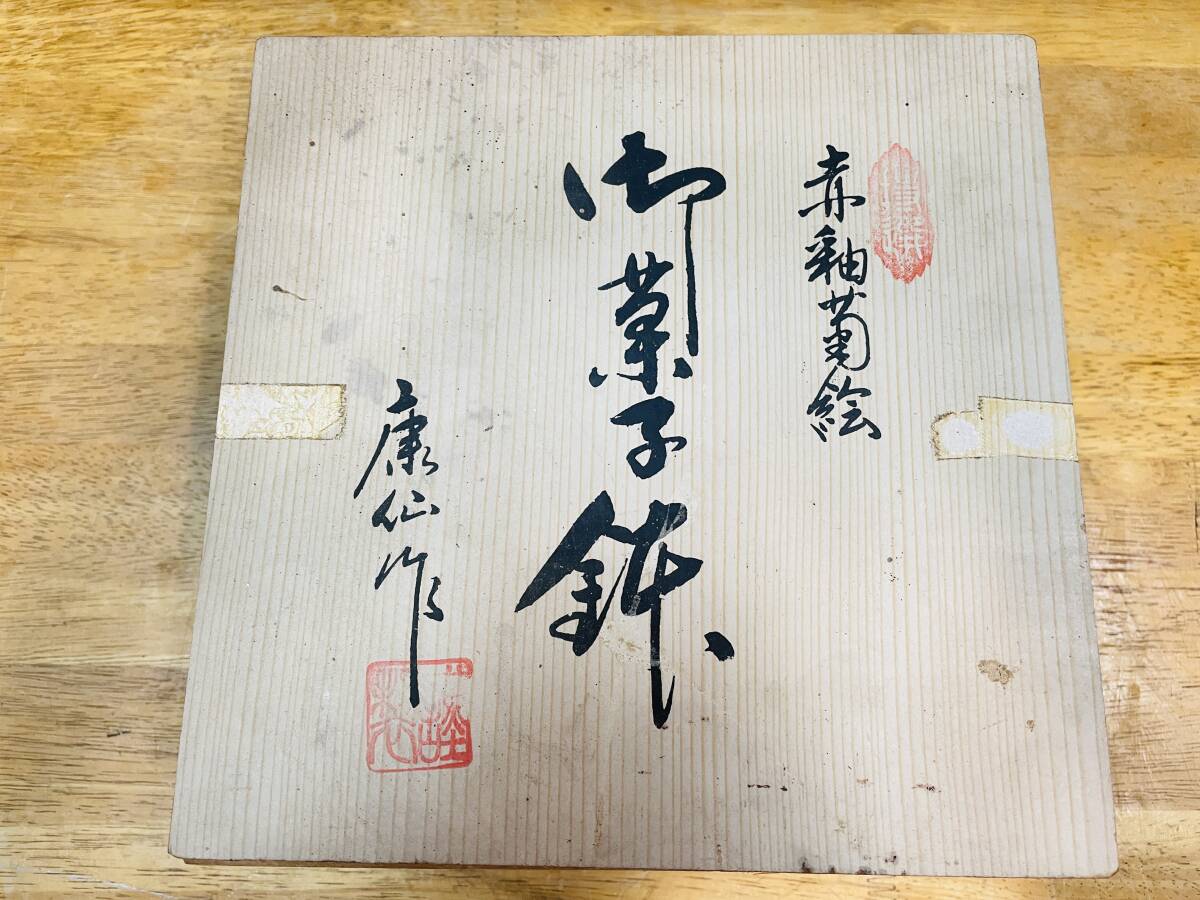 特選
赤釉菊絵
御菓子鉢
康仙作